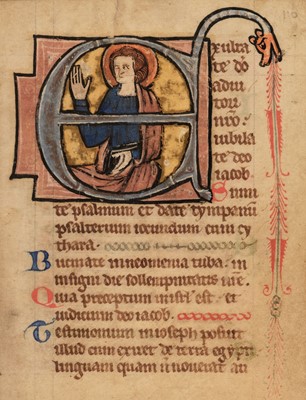 Exulta
te dō
adiu
tori
nr̄o
iubila
te deo
iacob.
Sumi
te psalmum et date tympanū
psalterium iocundum cum cy
thara.
Bucinate in neomenia tuba. in
insigni die sollempnitatis nr̄e.
Quia preceptum in isr̄l est. et
iudicium deo iacob.
Testimonium in ioseph posuit
illud cum exiret de terra egypti
linguam quam n̄ noverat au